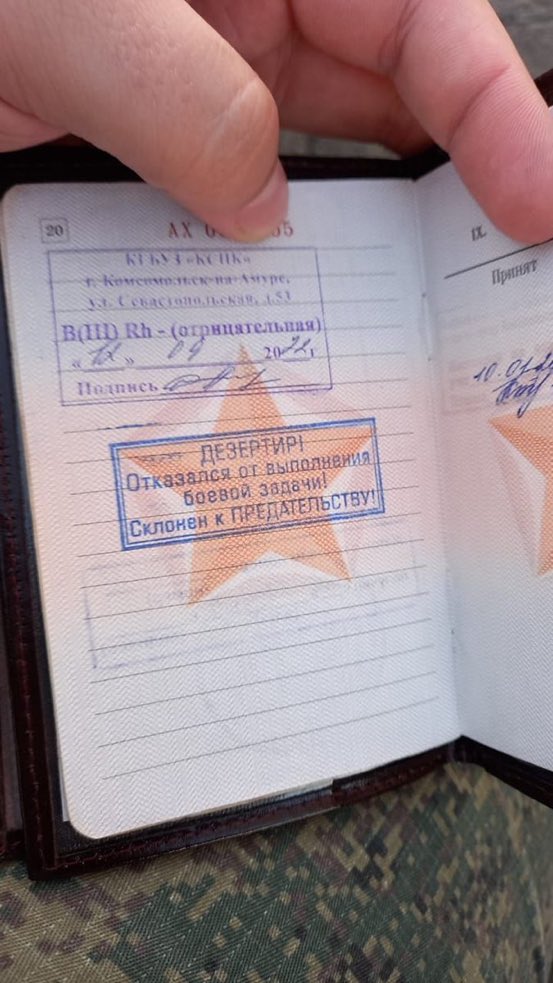 20
АХ 0 55
КГБУЗ «КСПК»
г. Комсомольск-на-Амуре,
ул. Севастопольская, д.53
В(III) Rh - (отрицательная)
« 12 » 04 2022 г
Подпись
ДЕЗЕРТИР!
Отказался от выполнения
боевой задачи!
Склонен к ПРЕДАТЕЛЬСТВУ!
IX.
Принят
10.01.2